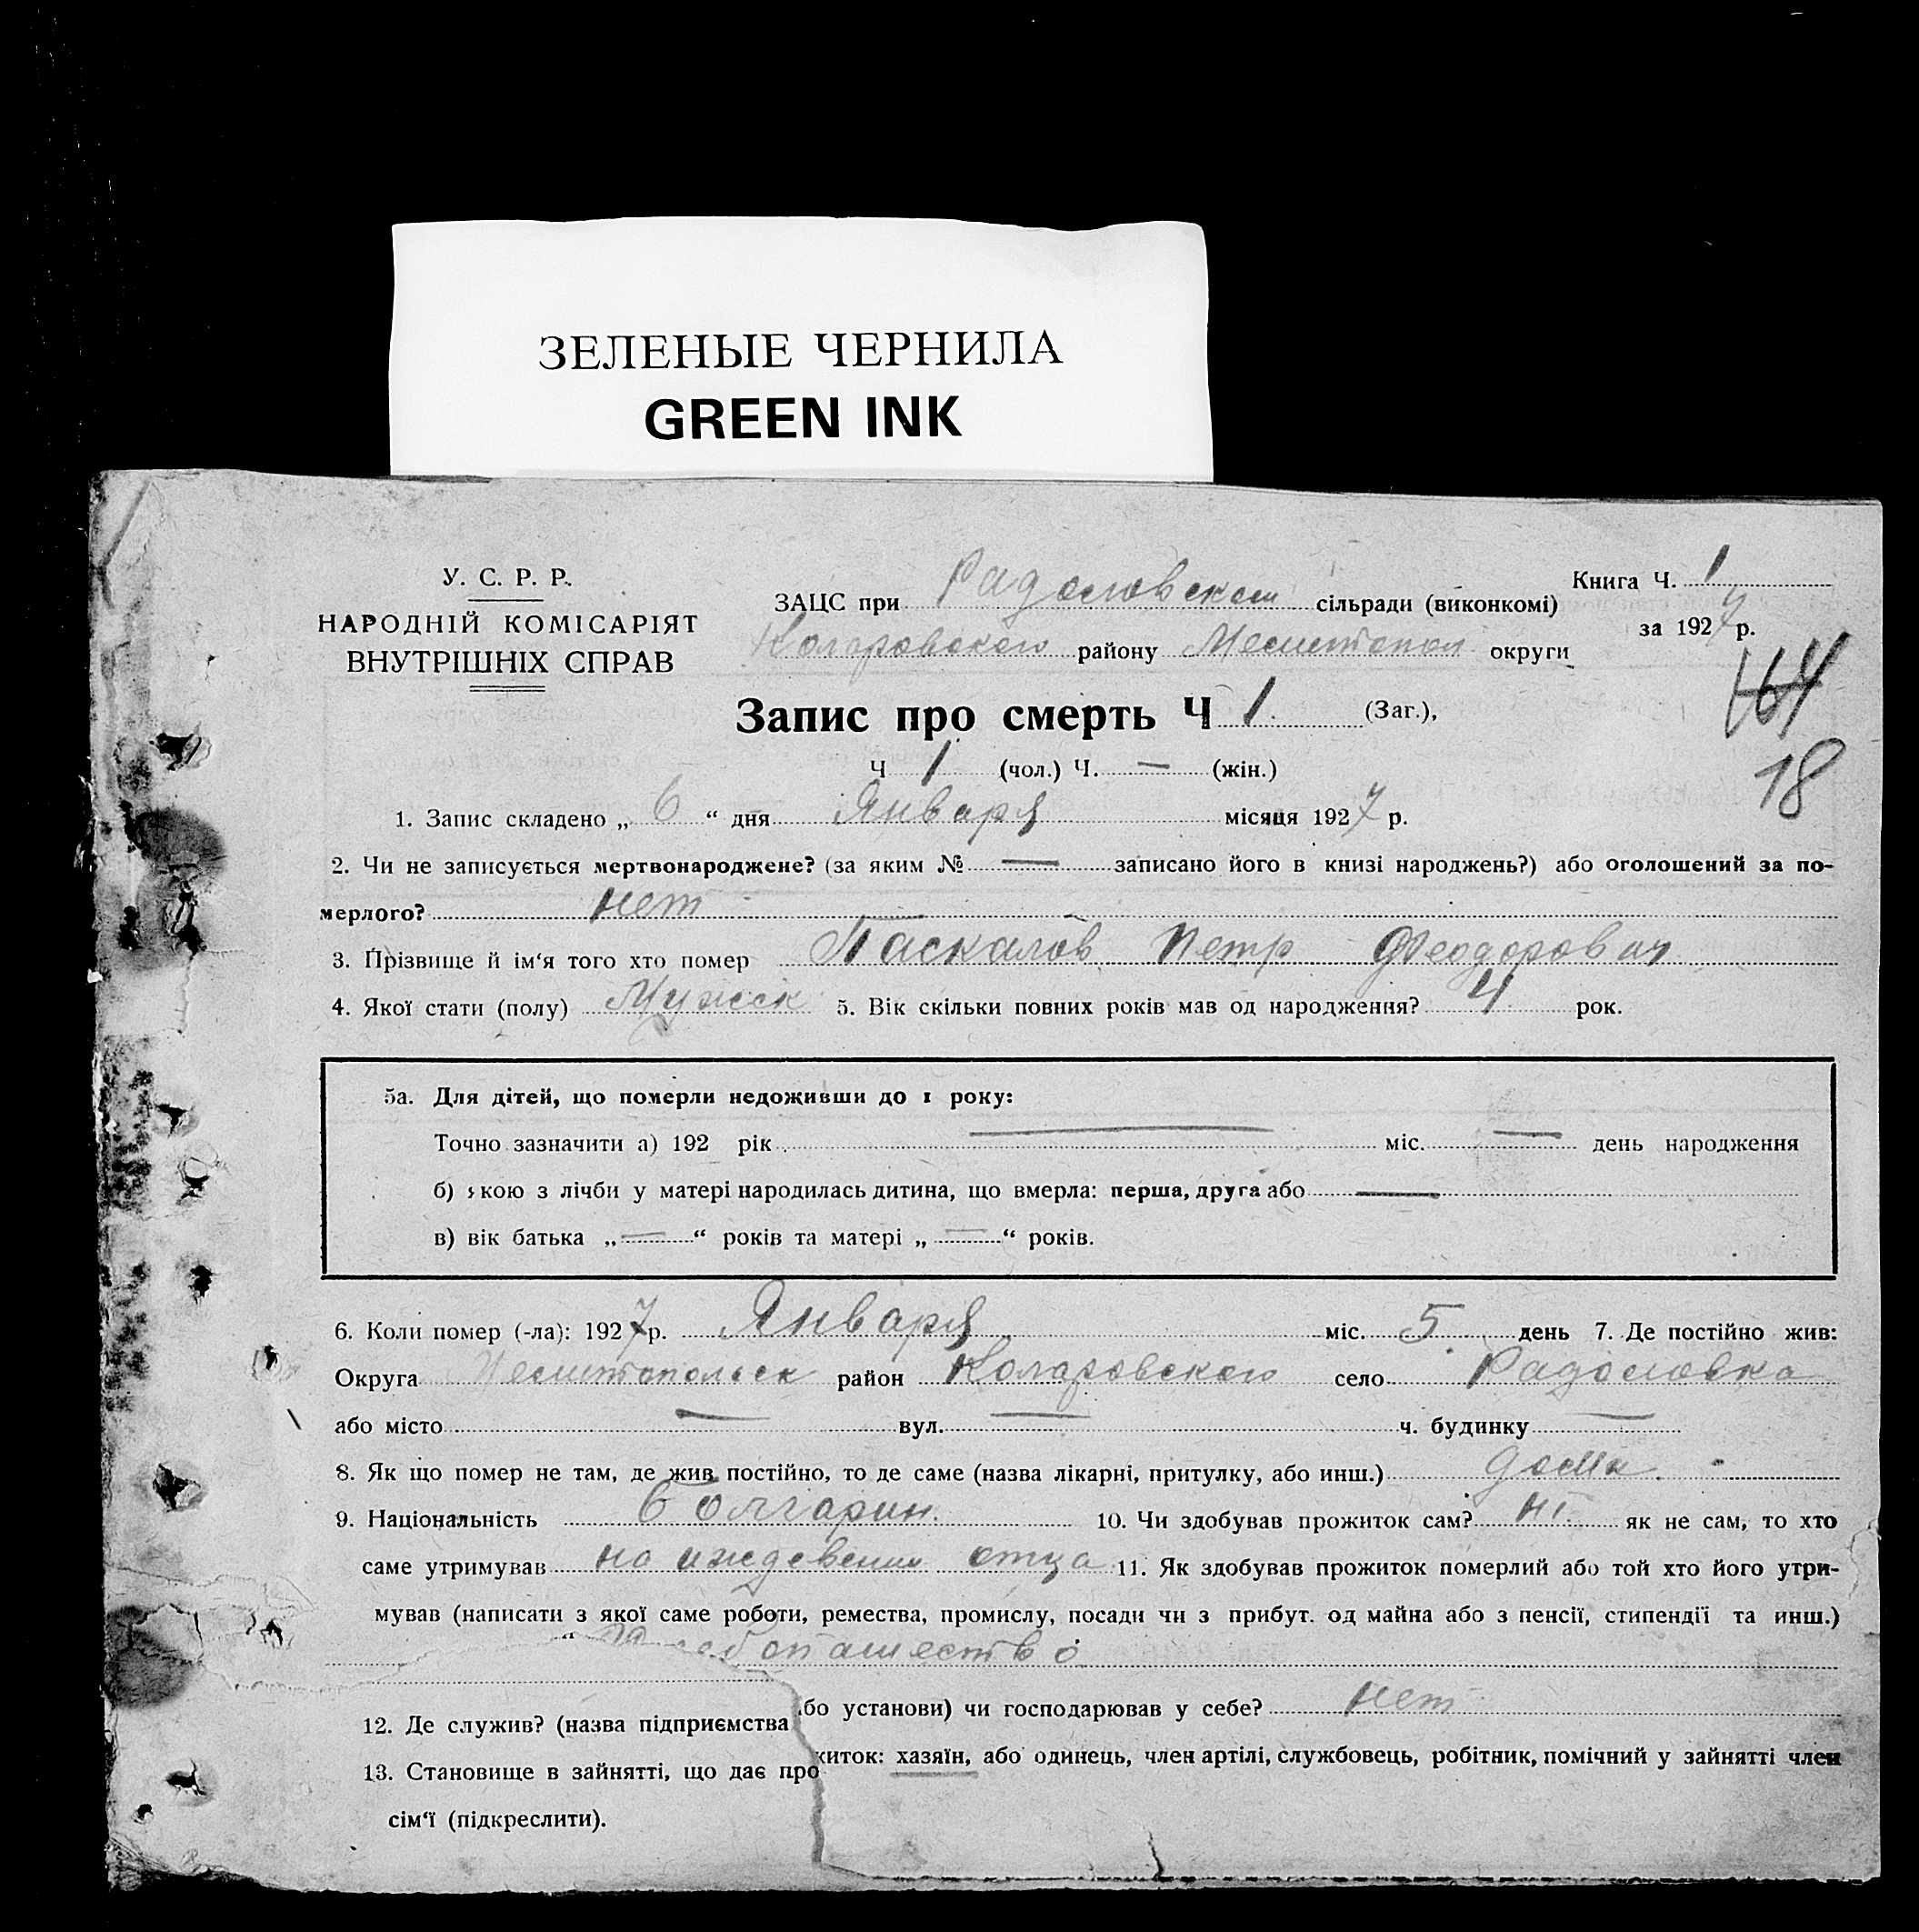 ЗЕЛЕНЫЕ ЧЕРНИЛА
GREEN INK
У. С. Р. Р.
НАРОДНІЙ КОМІСАРІЯТ
ВНУТРІШНІХ СПРАВ
Книга Ч. 1
ЗАЦС при Радоловском сільради (виконкомі)
за 1927 р.
Коларовского району Месит​опол округи
164
18
Запис про смерть Ч 1. (Заг.),
Ч 1 (чол.) Ч. — (жін.)
1. Запис складено „ 6 “ дня Января місяця 1927 р.
2. Чи не записується мертвонароджене? (за яким № — записано його в книзі народжень?) або оголошений за по-
мерлого? нет
3. Прізвище й ім‘я того хто помер Паскалов Петр Феодорович
4. Якої стати (полу) Мужск 5. Вік скільки повних років мав од народження? 4 рок.
5а. Для дітей, що померли недоживши до 1 року:
Точно зазначити а) 192 рік — міс. — день народження
б) якою з лічби у матері народилась дитина, що вмерла: перша, друга або —
в) вік батька „ — “ років та матері „ — “ років.
6. Коли помер (-ла): 1927 р. Января міс. 5 день 7. Де постійно жив:
Округа Меситопольск район Коларовского село Радоловка
або місто — вул. — ч. будинку —
8. Як що помер не там, де жив постійно, то де саме (назва лікарні, притулку, або инш.) дома.
9. Національність болгарин. 10. Чи здобував прожиток сам? ні як не сам, то хто
саме утримував на иждевении отца 11. Як здобував прожиток померлий або той хто його утри-
мував (написати з якої саме роботи, ремества, промислу, посади чи з прибут. од майна або з пенсії, стипендії та инш.)
12. Де служив? (назва підприємства або установи) чи господарював у себе? нет
13. Становище в зайнятті, що дає прожиток: хазяїн, або одинець, член артілі, службовець, робітник, помічний у зайнятті член
сім‘ї (підкреслити).